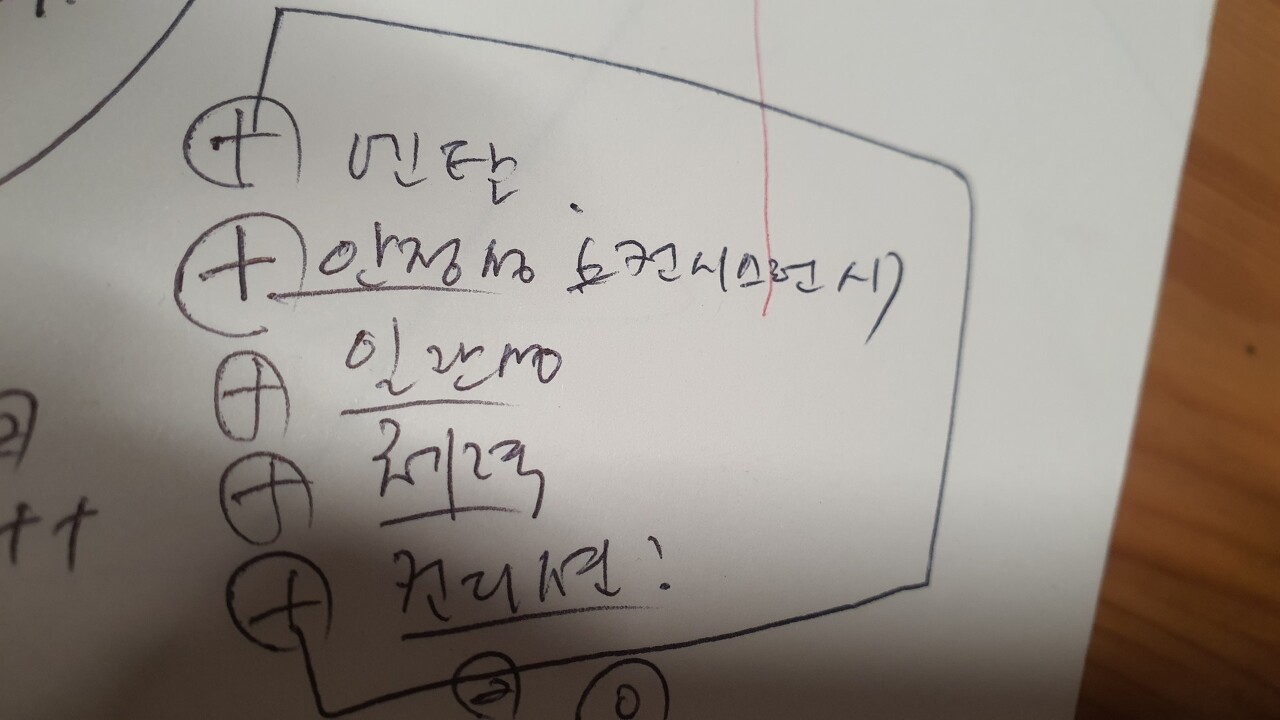 ⊕ 멘탈
⊕ 안정성 컨시스턴시)
⊕ 일관성
⊕ 체력
++
⊕ 컨디션!
② ⓪